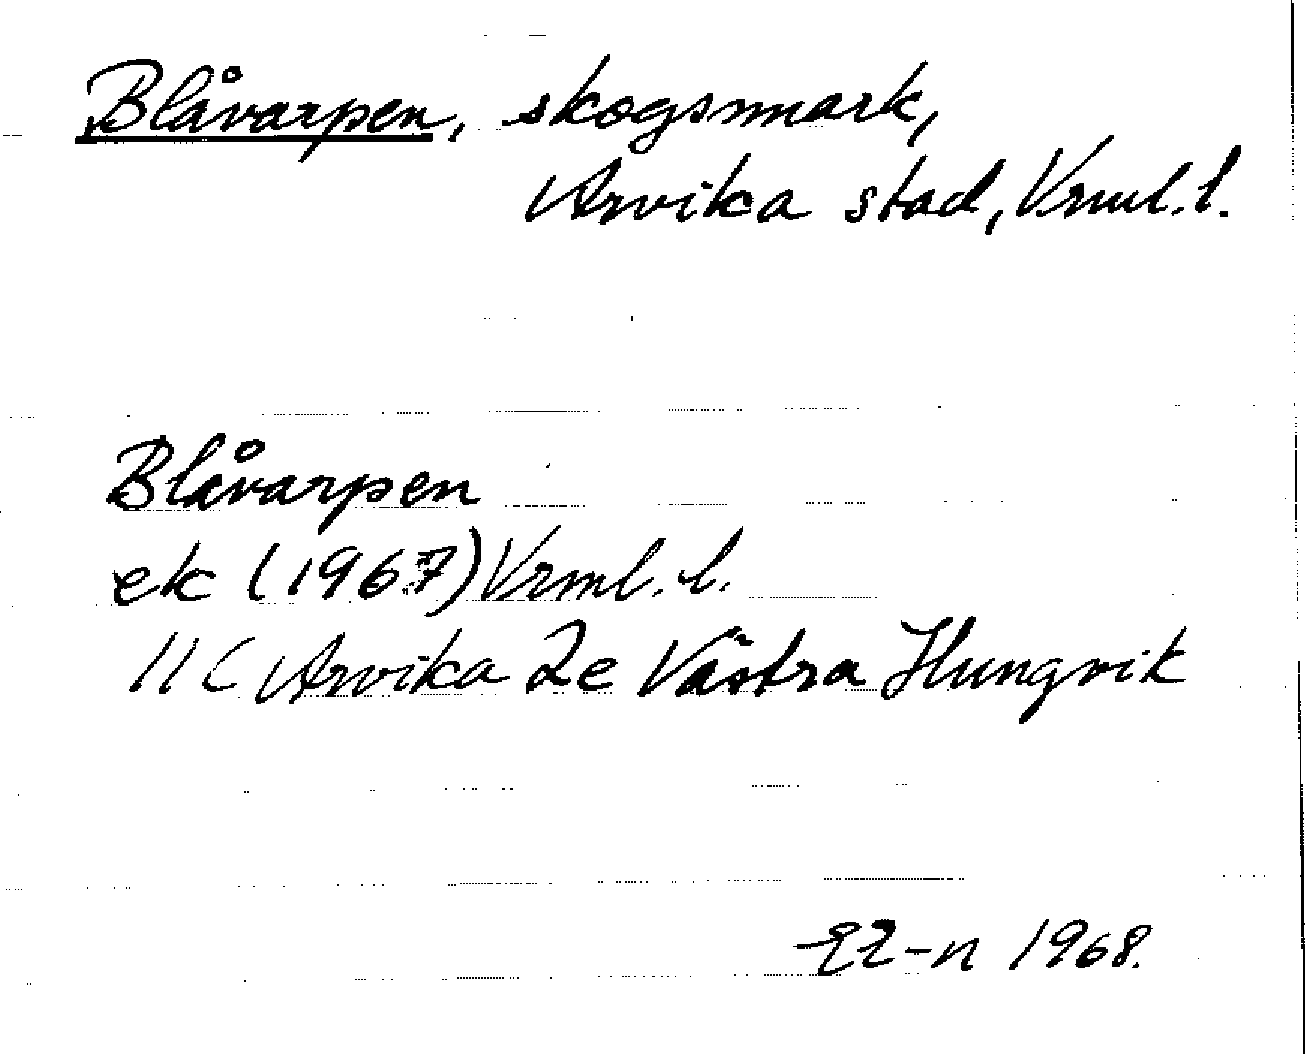 Blåvarpen, skogsmark,
Arvika stad, Vrml.l.
Blåvarpen
ek (1967) Vrml.l.
11C Arvika 2e Västra Hungvik
1968.